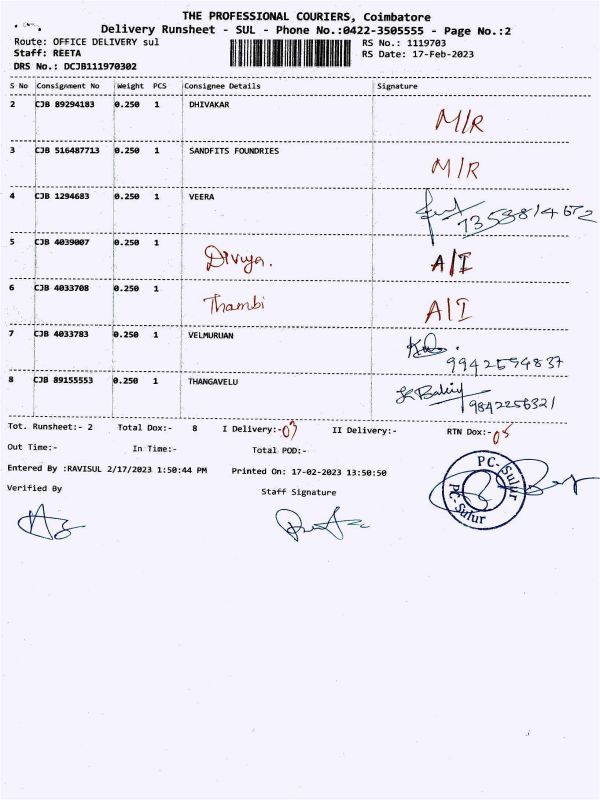 THE PROFESSIONAL COURIERS, Coimbatore
Delivery Runsheet - SUL - Phone No.:0422-3505555 - Page No.:2
Route: OFFICE DELIVERY sul
RS No.: 1119703
Staff: REETA
RS Date: 17-Feb-2023
DRS No.: DCJB111970302
S No Consignment No Weight PCS Consignee Details Signature
2 CJB 89294183 0.250 1 DHIVAKAR M/R
3 CJB 516487713 0.250 1 SANDFITS FOUNDRIES M/R
4 CJB 1294683 0.250 1 VEERA 7353814672
5 CJB 4039007 0.250 1 Divya. A/I
6 CJB 4033708 0.250 1 Thambi A/I
7 CJB 4033783 0.250 1 VELMURUAN 9942594837
8 CJB 89155553 0.250 1 THANGAVELU 9842256321
Tot. Runsheet:- 2 Total Dox:- 8 I Delivery:-03 II Delivery:- RTN Dox:-05
Out Time:- In Time:- Total POD:-
Entered By :RAVISUL 2/17/2023 1:50:44 PM Printed On: 17-02-2023 13:50:50
Verified By Staff Signature
PC-Sulur
PC-Sulur